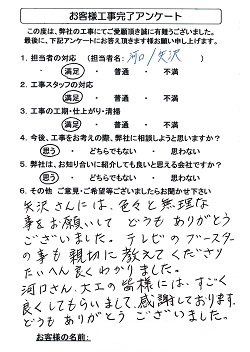 お客様工事完了アンケート
この度は、弊社の工事にてご愛顧頂き誠に有難うございました。
最後に、下記アンケートにお答え頂きます様お願い申し上げます。
1. 担当者の対応 (担当者名: 河口/矢沢 )
満足 ・ 普通 ・ 不満
2. 工事スタッフの対応
満足 ・ 普通 ・ 不満
3. 工事の工期・仕上がり・清掃
満足 ・ 普通 ・ 不満
4. 今後、工事をお考えの際、弊社に相談しようと思いますか?
思う ・ どちらでもない ・ 思わない
5. 弊社は、お知り合いに紹介しても良いと思える会社ですか?
思う ・ どちらでもない ・ 思わない
6. その他 ご意見・ご希望等ございましたらお聞かせ下さい
矢沢さんには、色々と無理な
事をお願いして どうも ありがとう
ございました。テレビのブースター
の事も親切に教えてくださり
たいへん良くわかりました。
河口さん、大工の皆様には、すごく
良くしてもらいまして、感謝しております。
どうも ありがとう ございました。
お客様の名前: